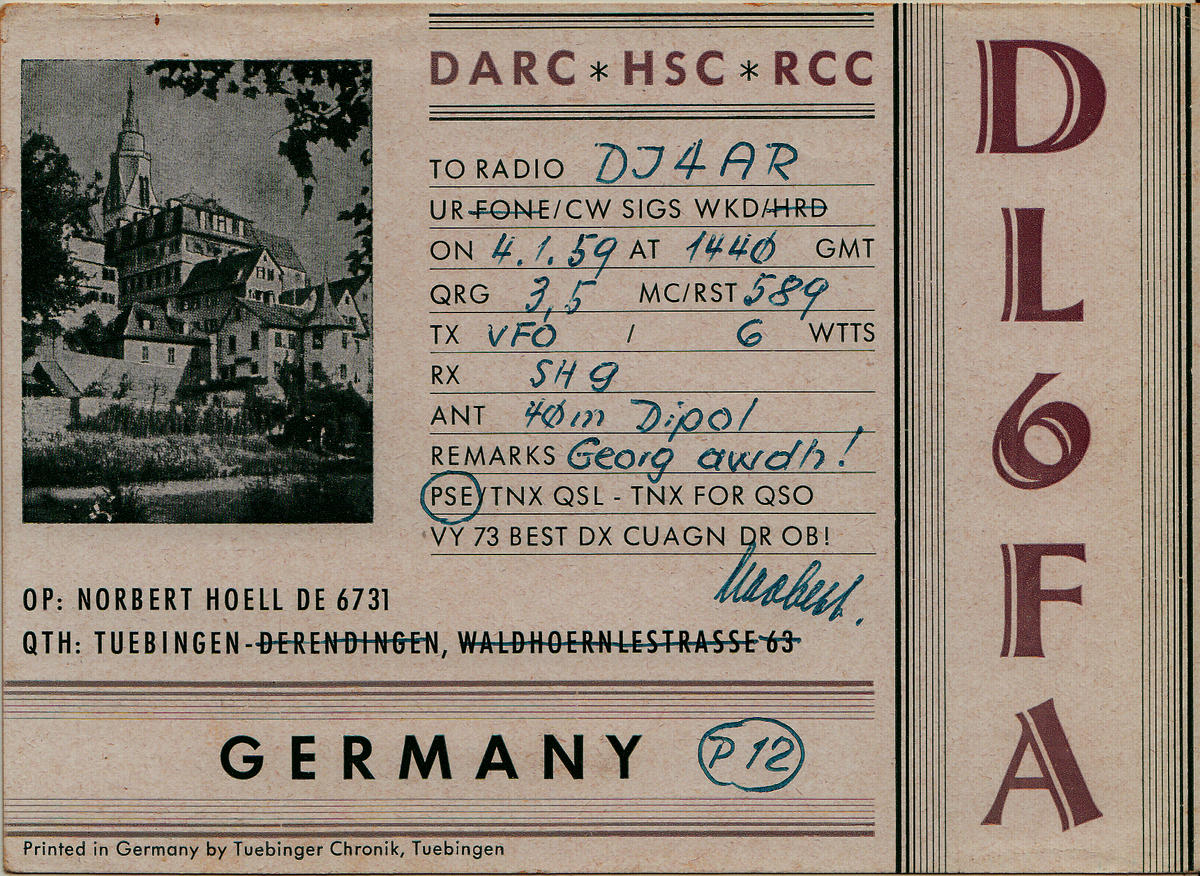 DARC * HSC * RCC
TO RADIO DJ4AR
UR FONE/CW SIGS WKD/HRD
ON 4.1.59 AT 144Ø GMT
QRG 3,5 MC/RST 589
TX VFO / 6 WTTS
RX SH 9
ANT 4Øm Dipol
REMARKS Georg awdh!
PSE/TNX QSL - TNX FOR QSO
VY 73 BEST DX CUAGN DR OB!
Norbert.
OP: NORBERT HOELL DE 6731
QTH: TUEBINGEN-DERENDINGEN, WALDHOERNLESTRASSE 63
GERMANY P 12
Printed in Germany by Tuebinger Chronik, Tuebingen
DL6FA